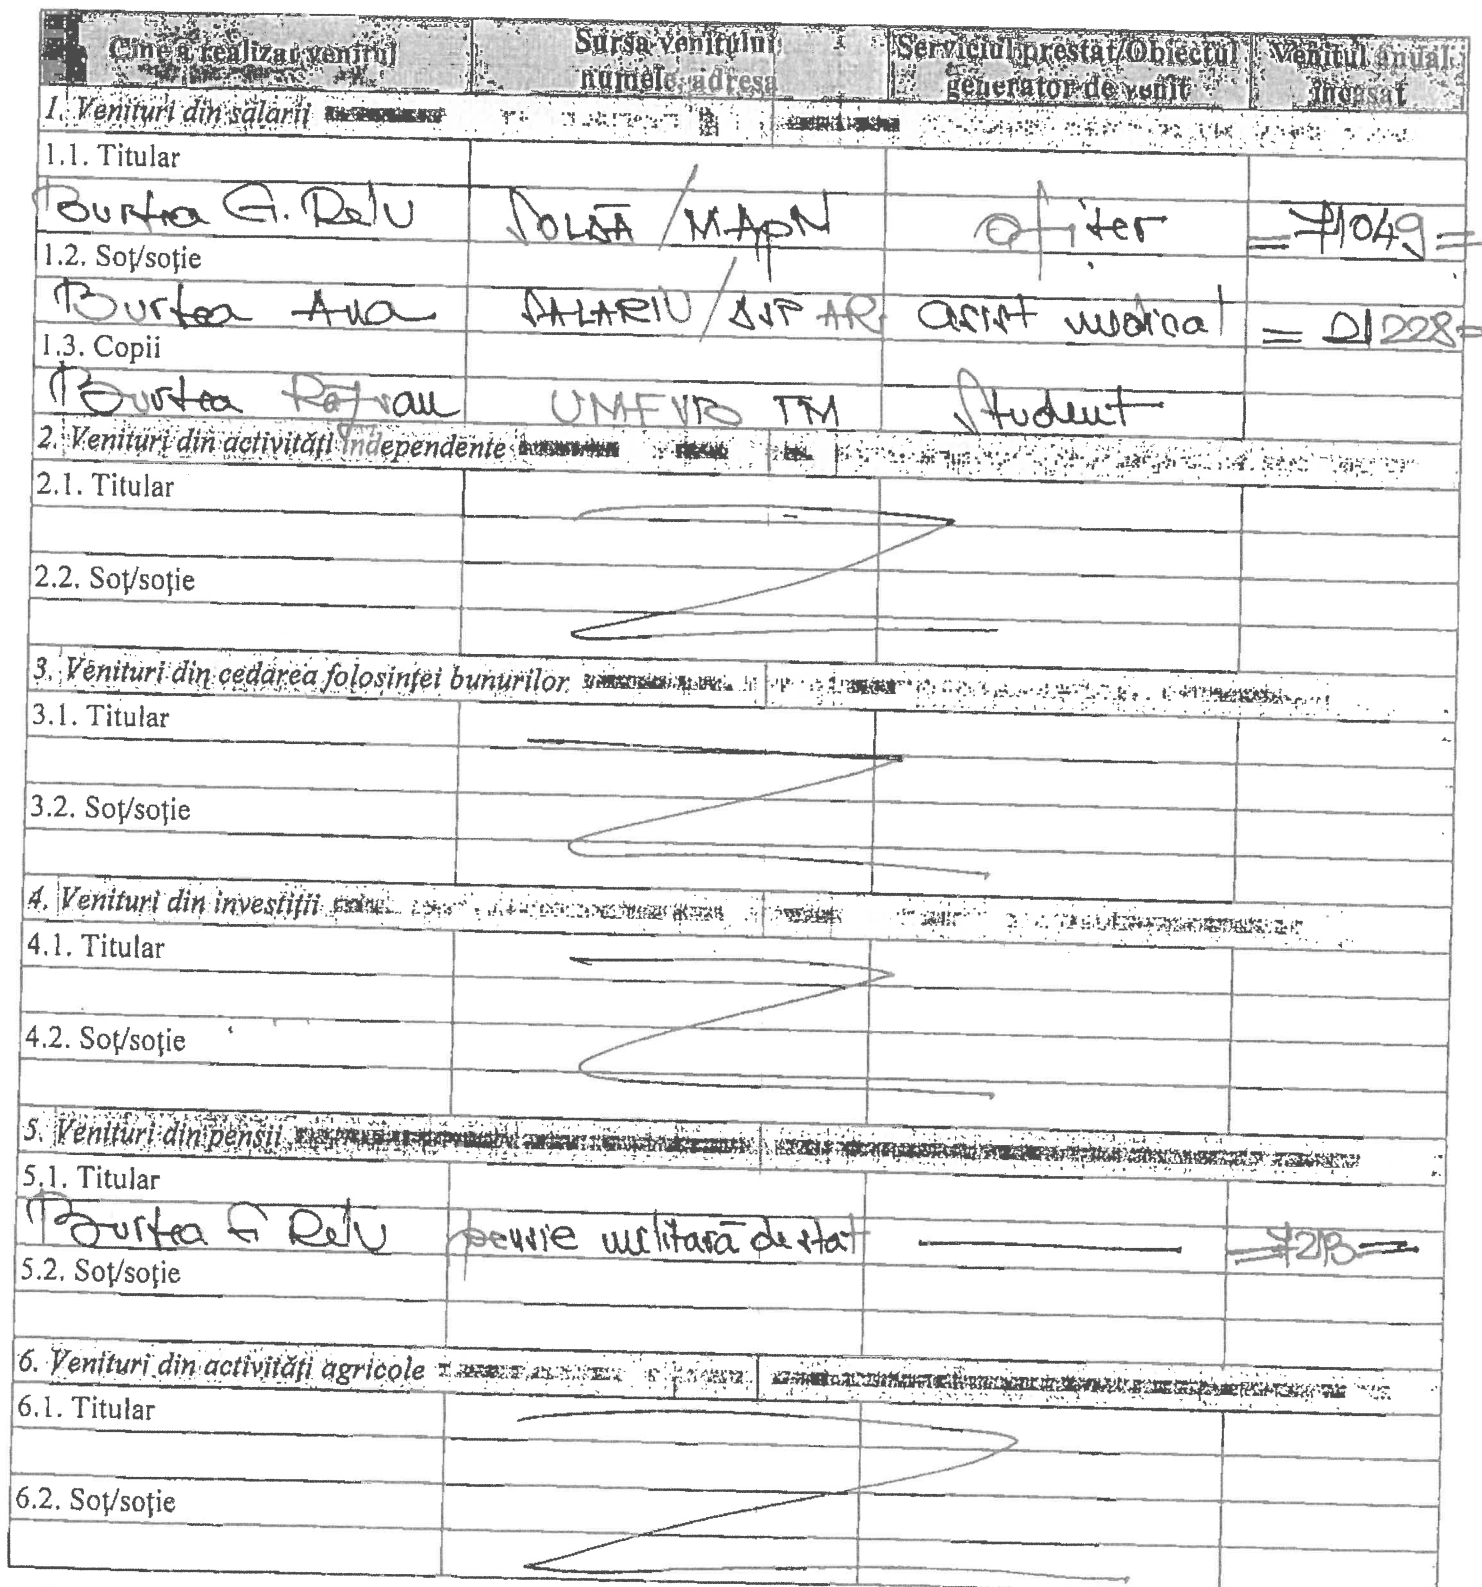 Cine a realizat venitul Sursa venitului Serviciul prestat/Obiectul Venitul anual
numele, adresa generator de venit încasat
1. Venituri din salarii
1.1. Titular
Burtea G. Relu SOLDĂ / MApN ofițer = 71049 =
1.2. Soț/soție
Burtea Ana SALARIU / DSP AR asist medical = 21228 =
1.3. Copii
Burtea Răzvan UMFVB TM Student
2. Venituri din activități independente
2.1. Titular
2.2. Soț/soție
3. Venituri din cedarea folosinței bunurilor
3.1. Titular
3.2. Soț/soție
4. Venituri din investiții
4.1. Titular
4.2. Soț/soție
5. Venituri din pensii
5.1. Titular
Burtea G Relu pensie militară de stat = 7213 =
5.2. Soț/soție
6. Venituri din activități agricole
6.1. Titular
6.2. Soț/soție